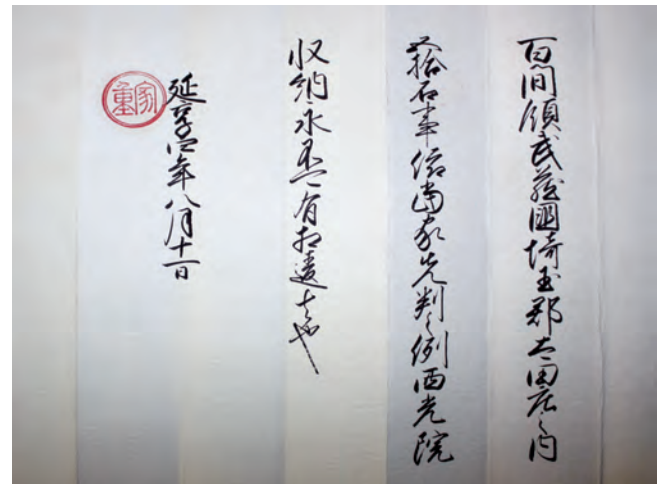 百間領武蔵國埼玉郡太田庄之内
五拾石事依當家先判之例西光院
収納永不可有相違者也
延享四年八月十一日
家重